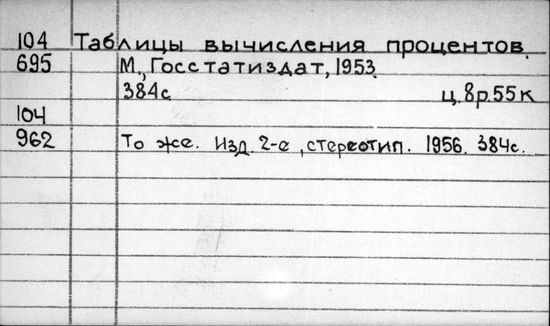 104 Таблицы вычисления процентов.
695 М., Госстатиздат, 1953.
384с. ц. 8р. 55к
104
962 То же. Изд. 2-е, стереотип. 1956. 384с.